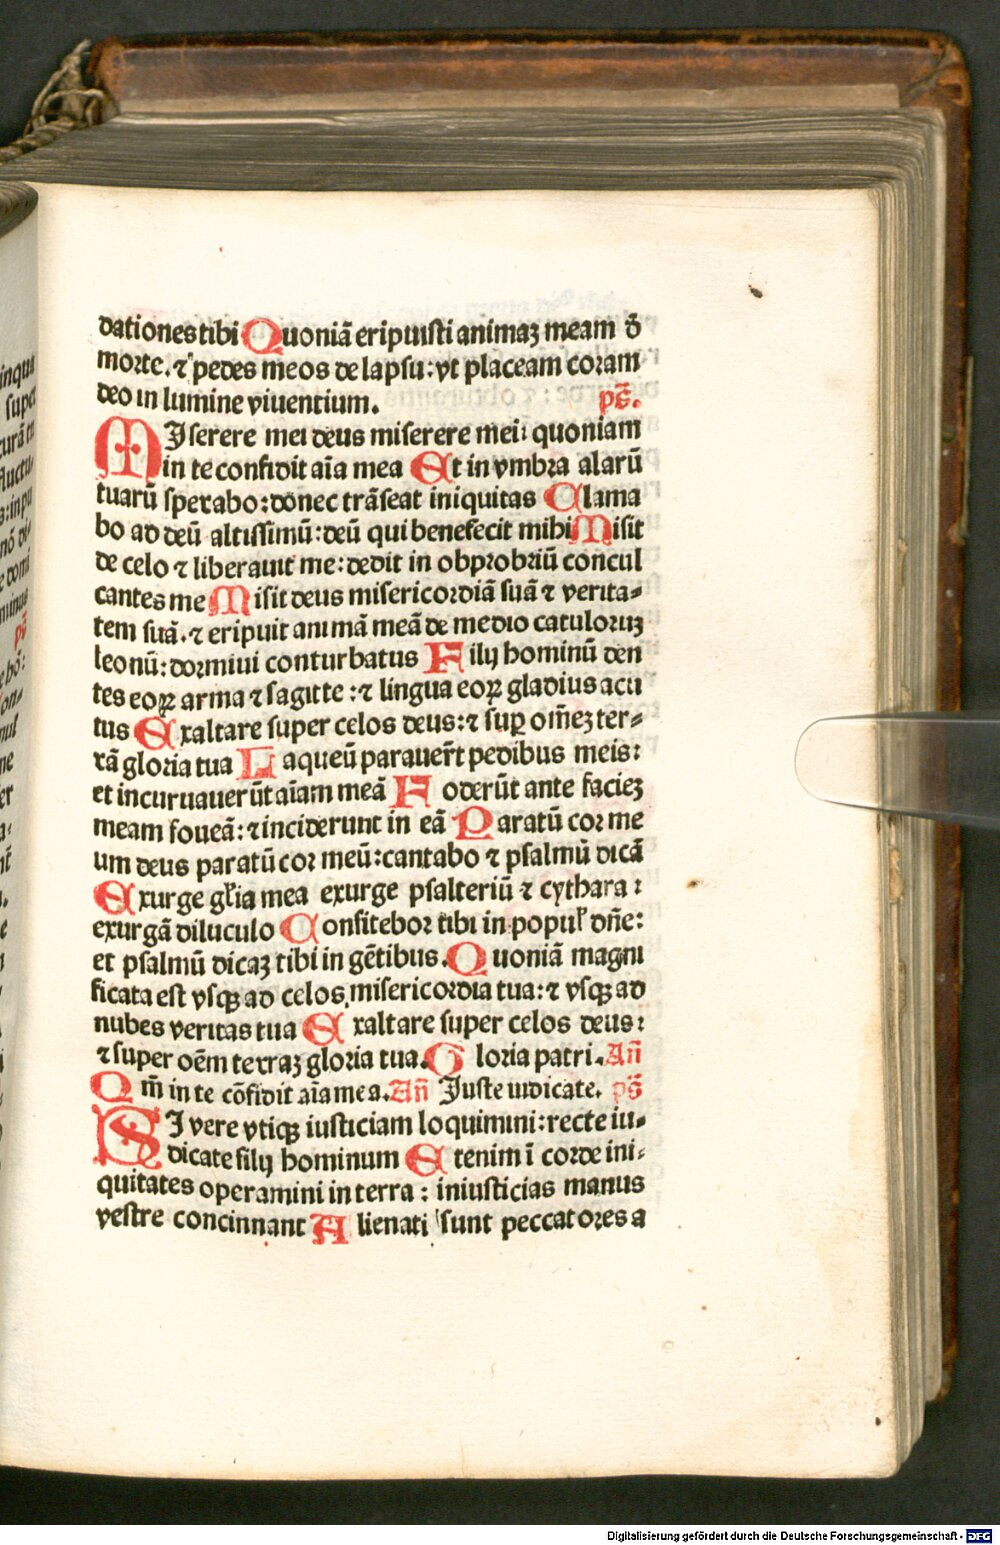 dationes tibi Quoniā eripuisti animaȝ meam ð
morte. ⁊ pedes meos de lapsu: vt placeam coram
deo in lumine viuentium. ps̄.
MIserere mei deus miserere mei: quoniam
in te confidit aīa mea Et in vmbra alarū
tuarū sperabo: donec trāseat iniquitas Clama
bo ad deū altissimū: deū qui benefecit mihi Misit
de celo ⁊ liberauit me: dedit in obprobriū concul
cantes me Misit deus misericordiā suā ⁊ verita⸗
tem suā. ⁊ eripuit animā meā de medio catuloruȝ
leonū: dormiui conturbatus Filij hominū den
tes eoꝝ arma ⁊ sagitte: ⁊ lingua eoꝝ gladius acu
tus Exaltare super celos deus: ⁊ suꝑ om̄eȝ ter⸗
rā gloria tua Laqueū parauer̄t pedibus meis:
et incuruauerūt aīam meā Foderūt ante facieȝ
meam foueā: ⁊ inciderunt in eā Paratū cor me
um deus paratū cor meū: cantabo ⁊ psalmū dicā
Exurge gl̄ia mea exurge psalteriū ⁊ cythara:
exurgā diluculo Confitebor tibi in popul̄ dn̄e:
et psalmū dicaȝ tibi in gētibus. Quoniā magni
ficata est vsqꝫ ad celos misericordia tua: ⁊ vsqꝫ ad
nubes veritas tua Exaltare super celos deus:
⁊ super oēm terraȝ gloria tua. Gloria patri. An̄
Qm̄ in te cōfidit aīa mea. An̄ Juste iudicate. ps̄
SI vere vtiqꝫ iusticiam loquimini: recte iu⸗
dicate filij hominum Etenim ī corde ini⸗
quitates operamini in terra: iniusticias manus
vestre concinnant Alienati sunt peccatores a
Digitalisierung gefördert durch die Deutsche Forschungsgemeinschaft - DFG